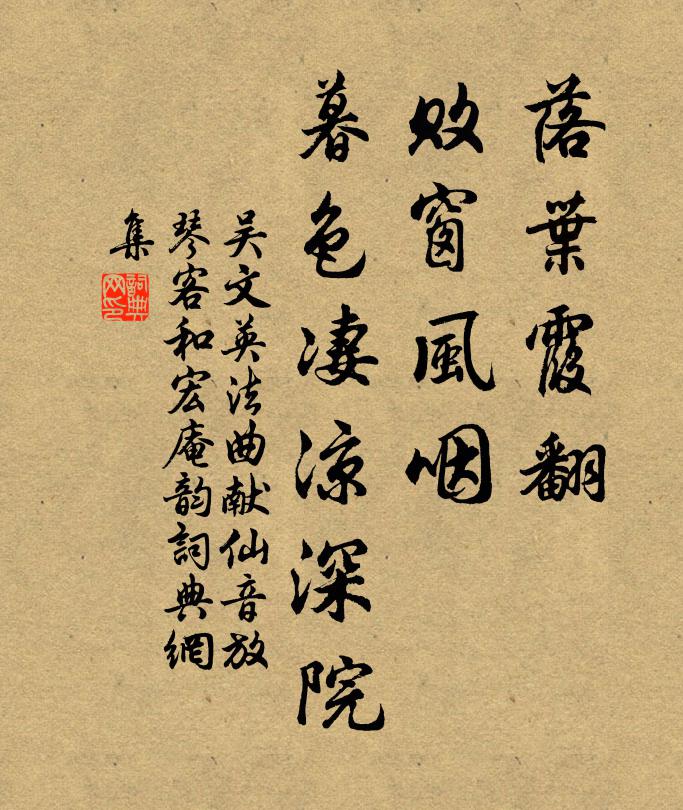 落葉霞翻
敗窗風咽
暮色凄凉深院
吴文英法曲献仙音放
琴客和宏庵韵詞典網
集
詞典
网印